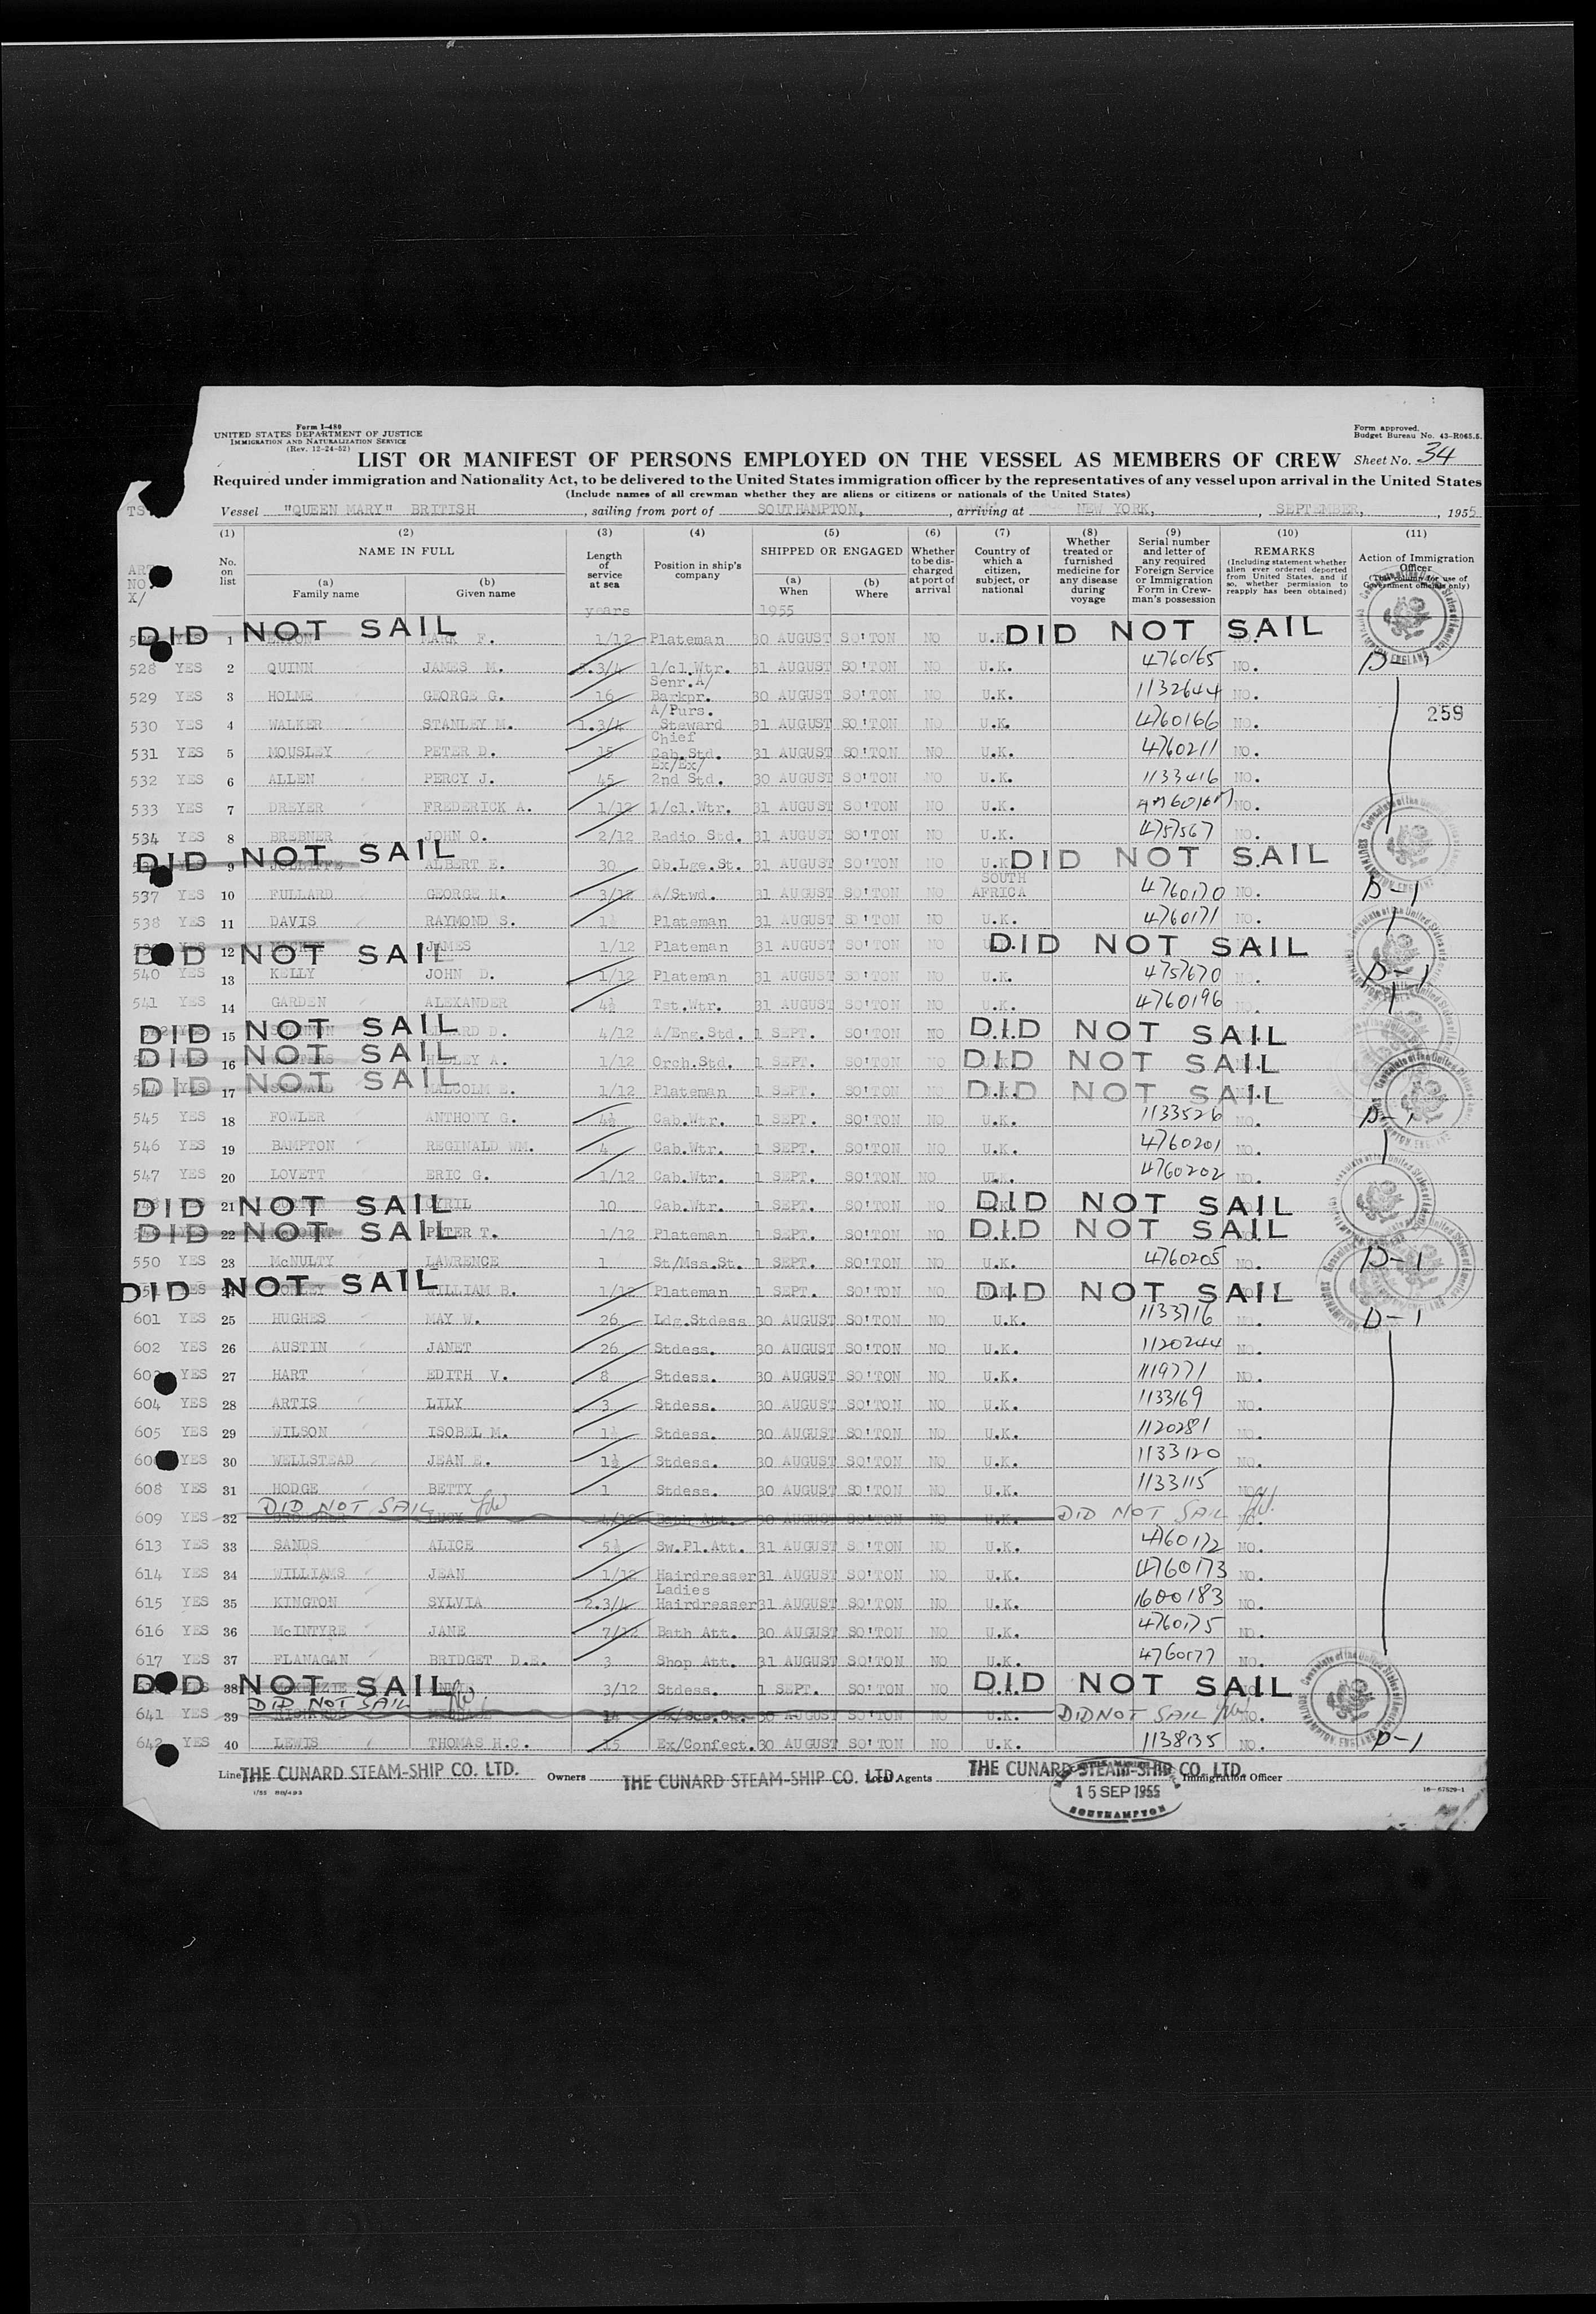 Form I-480
UNITED STATES DEPARTMENT OF JUSTICE
IMMIGRATION AND NATURALIZATION SERVICE
(Rev. 12-24-52)
Form approved.
Budget Bureau No. 43-R065.5.
LIST OR MANIFEST OF PERSONS EMPLOYED ON THE VESSEL AS MEMBERS OF CREW Sheet No. 34
Required under immigration and Nationality Act, to be delivered to the United States immigration officer by the representatives of any vessel upon arrival in the United States
(Include names of all crewman whether they are aliens or citizens or nationals of the United States)
Vessel "QUEEN MARY" BRITISH, sailing from port of SOUTHAMPTON, arriving at NEW YORK, SEPTEMBER, 1955
(1) No. on list
(2) NAME IN FULL (a) Family name (b) Given name
(3) Length of service at sea
(4) Position in ship's company
(5) SHIPPED OR ENGAGED (a) When (b) Where
(6) Whether to be discharged at port of arrival
(7) Country of which a citizen, subject, or national
(8) Whether treated or furnished medicine for any disease during voyage
(9) Serial number and letter of any required Foreign Service or Immigration Form in Crewman's possession
(10) REMARKS (Including statement whether alien ever ordered deported from United States, and if so, whether permission to reapply has been obtained)
(11) Action of Immigration Officer (This column for use of Government officials only)
years 1955
DID NOT SAIL 1 MARK F. 1/12 Plateman 30 AUGUST SO'TON NO U.K. DID NOT SAIL
528 YES 2 QUINN JAMES M. 3/4 1/cl.Wtr. 31 AUGUST SO'TON NO U.K. 4760165 NO. D-1
529 YES 3 HOLME GEORGE G. 16 Senr.A/ Barkpr. 30 AUGUST SO'TON NO U.K. 1132644 NO.
530 YES 4 WALKER STANLEY M. 1.3/4 A/Purs. Steward 31 AUGUST SO'TON NO U.K. 4760166 NO. 259
531 YES 5 MOUSLEY PETER D. 15 Chief Cab.Std. 31 AUGUST SO'TON NO U.K. 4760211 NO.
532 YES 6 ALLEN PERCY J. 45 Ex/Ex/ 2nd Std. 30 AUGUST SO'TON NO U.K. 1133416 NO.
533 YES 7 DREYER FREDERICK A. 1/12 1/cl.Wtr. 31 AUGUST SO'TON NO U.K. NO.
534 YES 8 BREBNER JOHN O. 2/12 Radio Std. 31 AUGUST SO'TON NO U.K. 4757567 NO.
DID NOT SAIL 9 JOLLIFFE ALBERT E. 30 Ob.Lge.St. 31 AUGUST SO'TON NO U.K. DID NOT SAIL
537 YES 10 FULLARD GEORGE H. 3/12 A/Stwd. 31 AUGUST SO'TON NO SOUTH AFRICA 4760170 NO. D-1
538 YES 11 DAVIS RAYMOND S. 1½ Plateman 31 AUGUST SO'TON NO U.K. 4760171 NO.
DID NOT SAIL 12 JAMES 1/12 Plateman 31 AUGUST SO'TON NO DID NOT SAIL
540 YES 13 KELLY JOHN D. 1/12 Plateman 31 AUGUST SO'TON NO U.K. 4757670 D-1
541 YES 14 GARDEN ALEXANDER 4½ Tst.Wtr. 31 AUGUST SO'TON NO U.K. 4760196
DID NOT SAIL 15 4/12 A/Eng.Std. 1 SEPT. SO'TON NO DID NOT SAIL
DID NOT SAIL 16 1/12 Orch.Std. 1 SEPT. SO'TON DID NOT SAIL
DID NOT SAIL 17 MALCOLM 1/12 Plateman 1 SEPT. SO'TON DID NOT SAIL
545 YES 18 FOWLER ANTHONY G. 4½ Cab.Wtr. 1 SEPT. SO'TON NO U.K. 1133526 NO. D-1
546 YES 19 BAMPTON REGINALD WM. 4 Cab.Wtr. 1 SEPT. SO'TON NO U.K. 4760201 NO.
547 YES 20 LOVETT ERIC G. 1/12 Cab.Wtr. 1 SEPT. SO'TON NO U.K. 4760202 NO.
DID NOT SAIL 21 CYRIL 10 Cab.Wtr. 1 SEPT. SO'TON NO DID NOT SAIL
DID NOT SAIL 22 PETER T. 1/12 Plateman 1 SEPT. SO'TON NO DID NOT SAIL
550 YES 23 McNULTY LAWRENCE 1 St/Mss.St. 1 SEPT. SO'TON NO U.K. 4760205 NO. D-1
DID NOT SAIL 24 WILLIAM B. 1/12 Plateman 1 SEPT. SO'TON NO DID NOT SAIL
601 YES 25 HUGHES MAY W. 26 Ldg.Stdess 30 AUGUST SO'TON NO U.K. 1133716 NO. D-1
602 YES 26 AUSTIN JANET 26 Stdess. 30 AUGUST SO'TON NO U.K. 1120244 NO.
603 YES 27 HART EDITH V. 8 Stdess. 30 AUGUST SO'TON NO U.K. 1119771 NO.
604 YES 28 ARTIS LILY 3 Stdess. 30 AUGUST SO'TON NO U.K. 1133169 NO.
605 YES 29 WILSON ISOBEL M. 1½ Stdess. 30 AUGUST SO'TON NO U.K. 1120281 NO.
YES 30 WELLSTEAD JEAN E. 1½ Stdess. 30 AUGUST SO'TON NO U.K. 1133120 NO.
608 YES 31 HODGE BETTY 1 Stdess. 30 AUGUST SO'TON NO U.K. 1133115 NO.
609 YES 32 DID NOT SAIL LUCY Bath Att. 30 AUGUST SO'TON NO U.K. DID NOT SAIL NO.
613 YES 33 SANDS ALICE 5½ Sw.Pl.Att. 31 AUGUST SO'TON NO U.K. 4760172 NO.
614 YES 34 WILLIAMS JEAN 1/12 Hairdresser 31 AUGUST SO'TON NO U.K. 4760173 NO.
615 YES 35 KINGTON SYLVIA 2.3/4 Ladies Hairdresser 31 AUGUST SO'TON NO U.K. 1600183 NO.
616 YES 36 McINTYRE JANE 7/12 Bath Att. 30 AUGUST SO'TON NO U.K. 4760175 NO.
617 YES 37 FLANAGAN BRIDGET D.E. 3 Shop Att. 31 AUGUST SO'TON NO U.K. 4760177 NO.
DID NOT SAIL 38 McKENZIE 3/12 Stdess. 1 SEPT. SO'TON NO DID NOT SAIL
641 YES 39 DID NOT SAIL 14 30 AUGUST SO'TON NO U.K. DID NOT SAIL NO.
642 YES 40 LEWIS THOMAS H.C. 15 Ex/Confect. 30 AUGUST SO'TON NO U.K. 1138135 NO. D-1
Line THE CUNARD STEAM-SHIP CO. LTD. Owners THE CUNARD STEAM-SHIP CO. LTD. Local Agents THE CUNARD STEAM-SHIP CO. LTD. Immigration Officer
15 SEP 1955
SOUTHAMPTON
16-67529-1